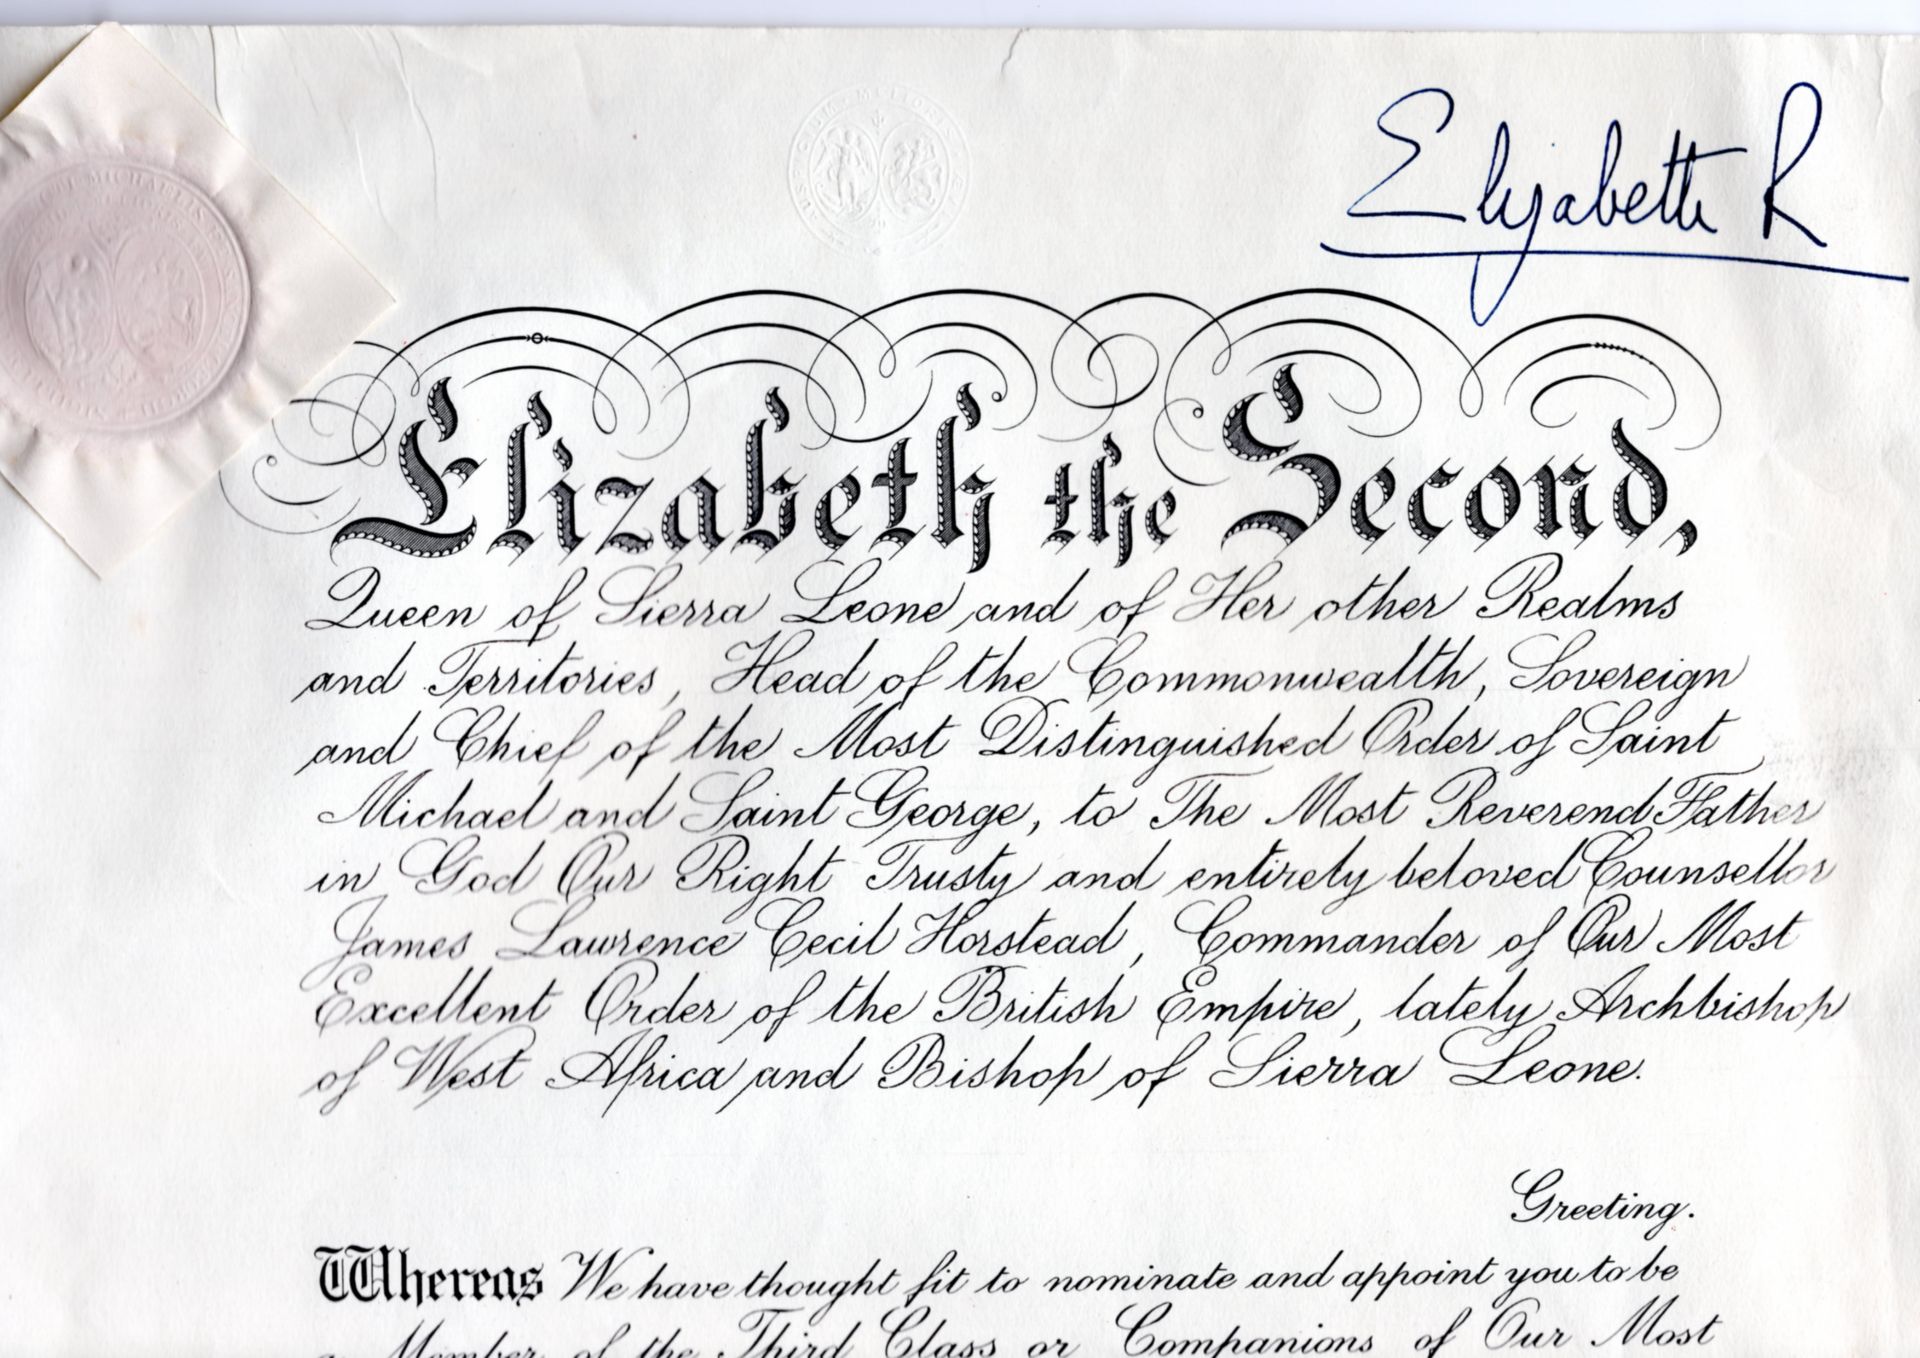 Elizabeth R
Elizabeth the Second,
Queen of Sierra Leone and of Her other Realms
and Territories, Head of the Commonwealth, Sovereign
and Chief of the Most Distinguished Order of Saint
Michael and Saint George, to The Most Reverend Father
in God Our Right Trusty and entirely beloved Counsellor
James Lawrence Cecil Horstead, Commander of Our Most
Excellent Order of the British Empire, lately Archbishop
of West Africa and Bishop of Sierra Leone.
Greeting.
Whereas We have thought fit to nominate and appoint you to be
a Member of the Third Class or Companions of Our Most